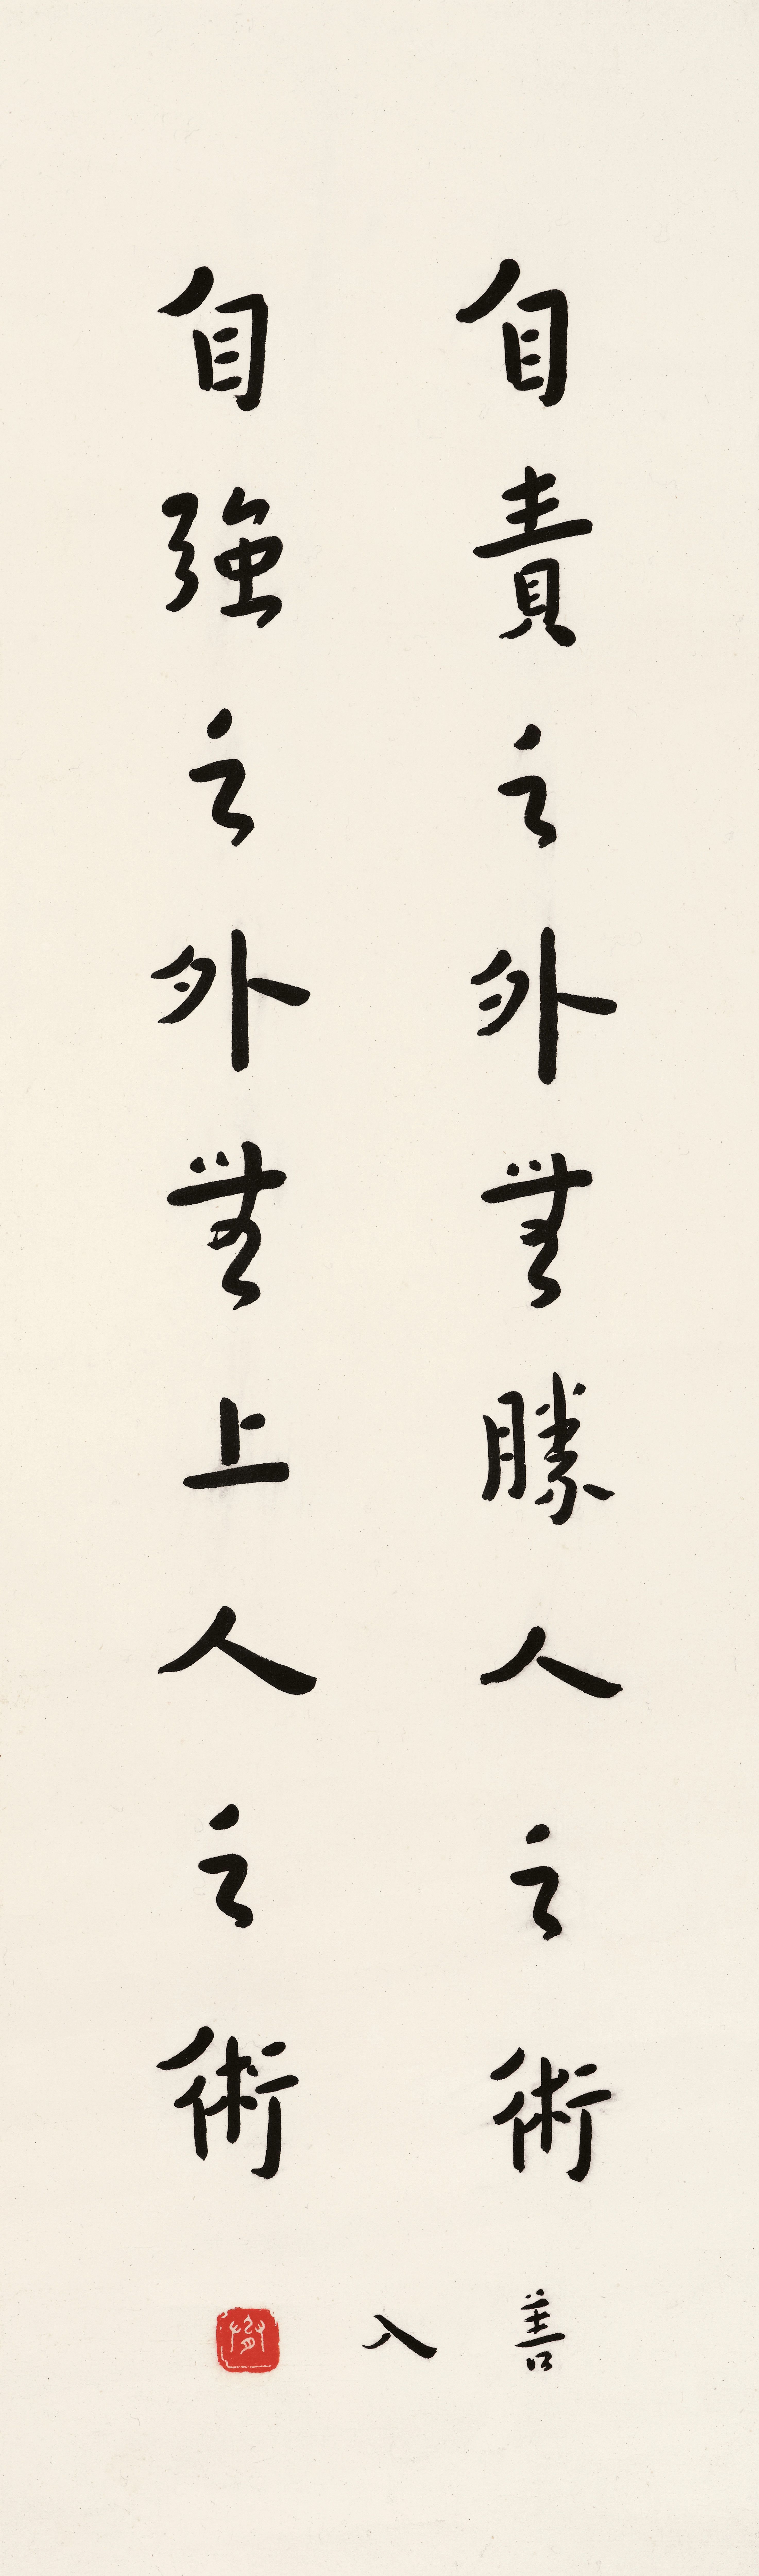 自責之外無勝人之術
自強之外無上人之術
善入